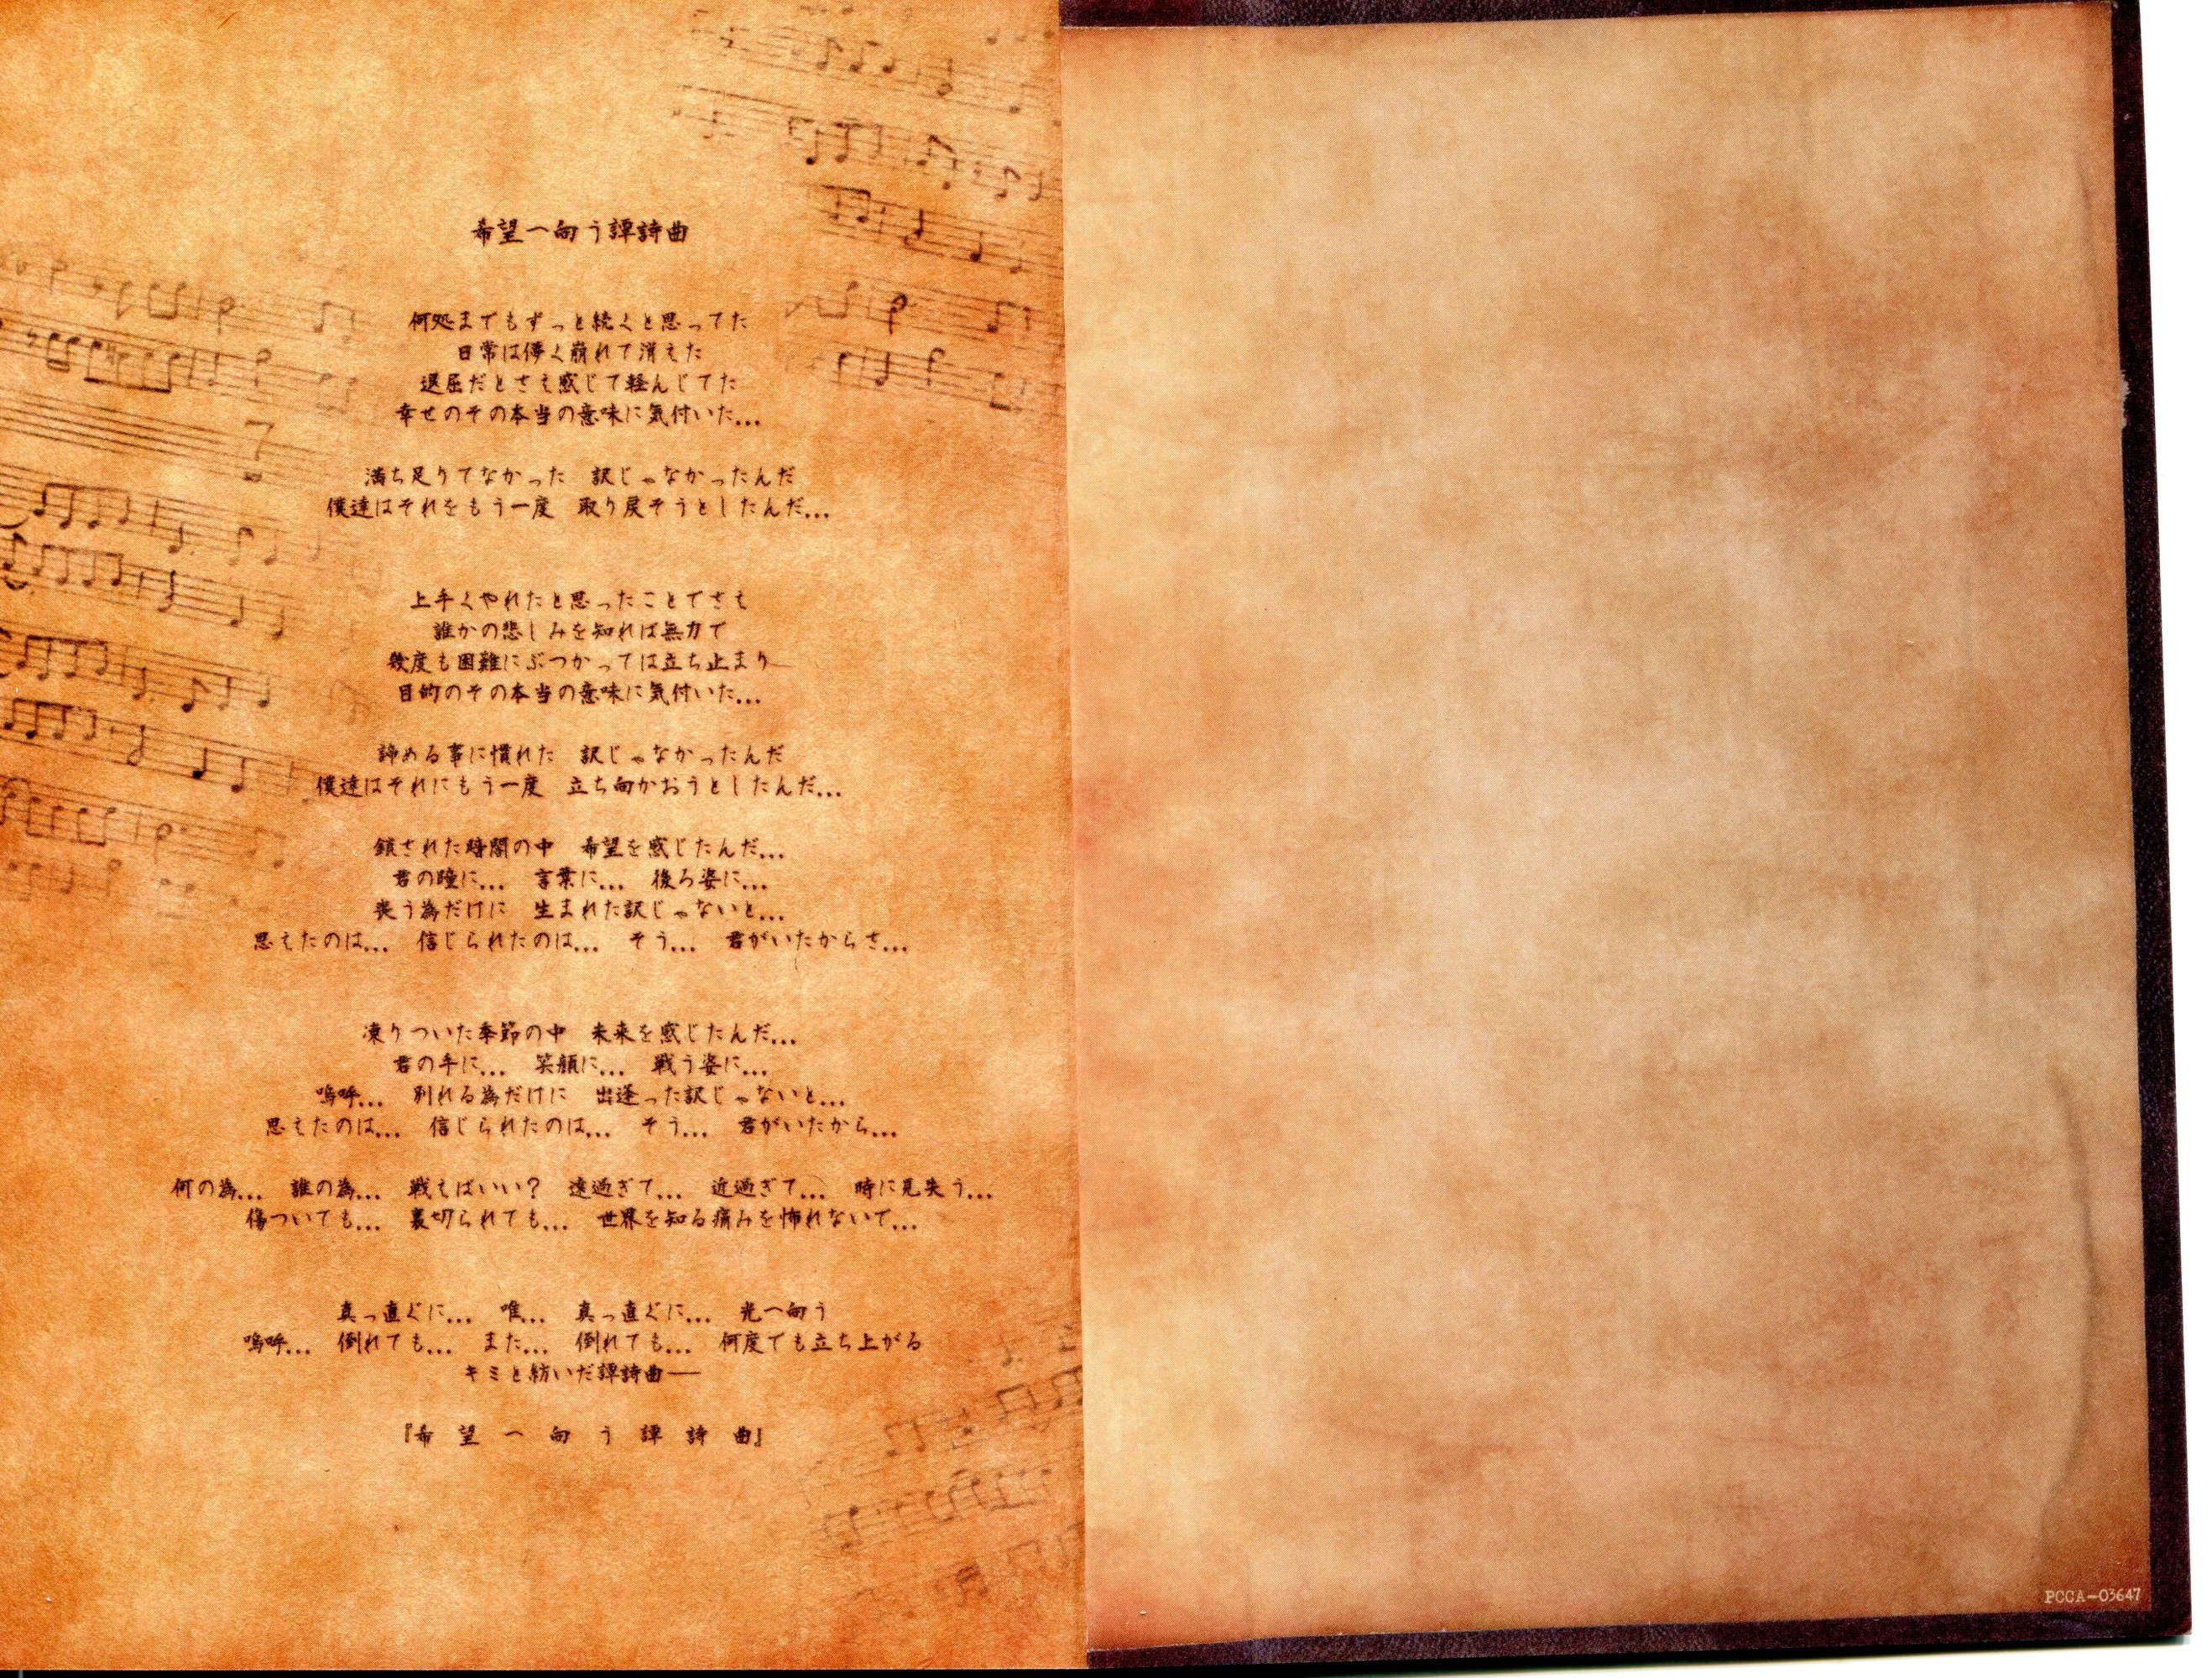 希望へ向う譚詩曲
何処までもずっと続くと思ってた
日常は儚く崩れて消えた
退屈だとさえ感じて軽んじてた
幸せのその本当の意味に気付いた…
満ち足りてなかった　訳じゃなかったんだ
僕達はそれをもう一度　取り戻そうとしたんだ…
上手くやれたと思ったことでさえ
誰かの悲しみを知れば無力で
幾度も困難にぶつかっては立ち止まり
目的のその本当の意味に気付いた…
諦める事に慣れた　訳じゃなかったんだ
僕達はそれにもう一度　立ち向かおうとしたんだ…
鎖された時間の中　希望を感じたんだ…
君の瞳に…　言葉に…　後ろ姿に…
喪う為だけに　生まれた訳じゃないと…
思えたのは…　信じられたのは…　そう…　君がいたからさ…
凍りついた季節の中　未来を感じたんだ…
君の手に…　笑顔に…　戦う姿に…
嗚呼…　別れる為だけに　出逢った訳じゃないと…
思えたのは…　信じられたのは…　そう…　君がいたから…
何の為…　誰の為…　戦えばいい？　遠過ぎて…　近過ぎて…　時に見失う…
傷ついても…　裏切られても…　世界を知る痛みを怖れないで…
真っ直ぐに…　唯…　真っ直ぐに…　光へ向う
嗚呼…　倒れても…　また…　倒れても…　何度でも立ち上がる
キミと紡いだ譚詩曲──
『希望へ向う譚詩曲』
PCCA-03647